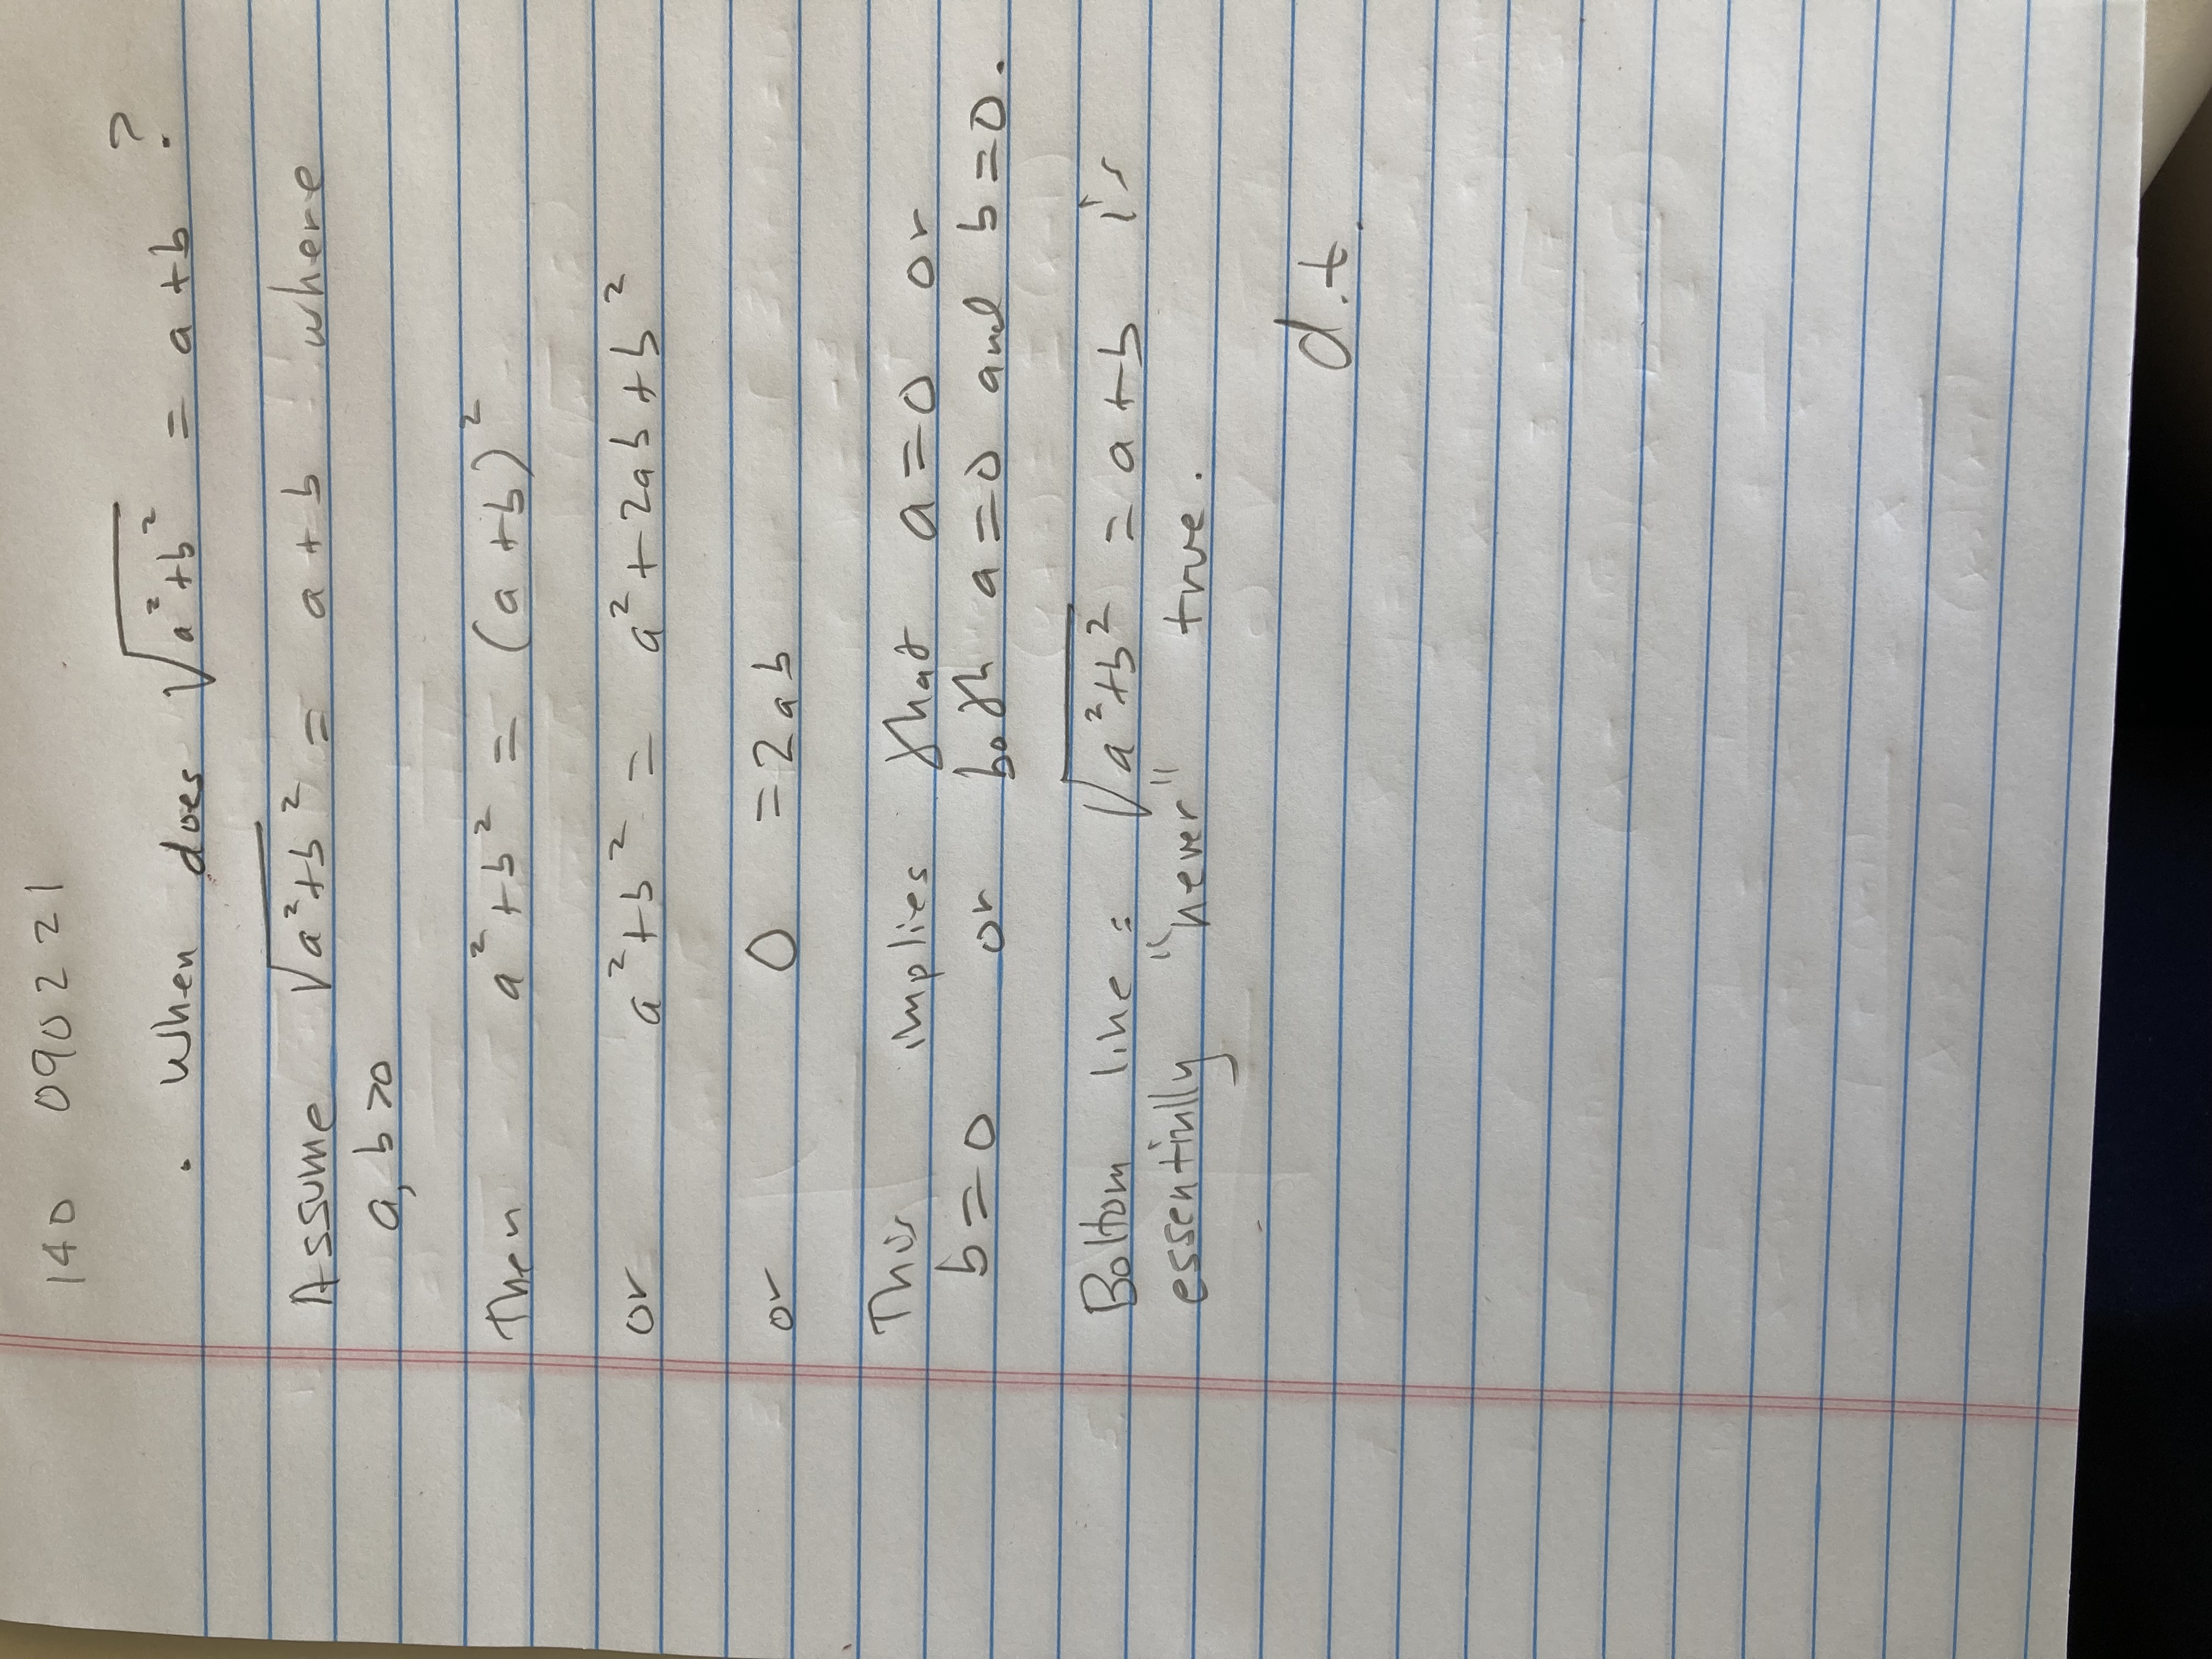 140 090221
. When does √a²+b² = a+b ?
Assume √a²+b² = a+b where
a, b>0
Then a²+b² = (a+b)²
or a²+b² = a²+2ab+b²
or 0 = 2ab
This implies that a=0 or
b=0 or both a=0 and b=0.
Bottom line: √a²+b² = a+b is
essentinlly "never" true.
d.t.